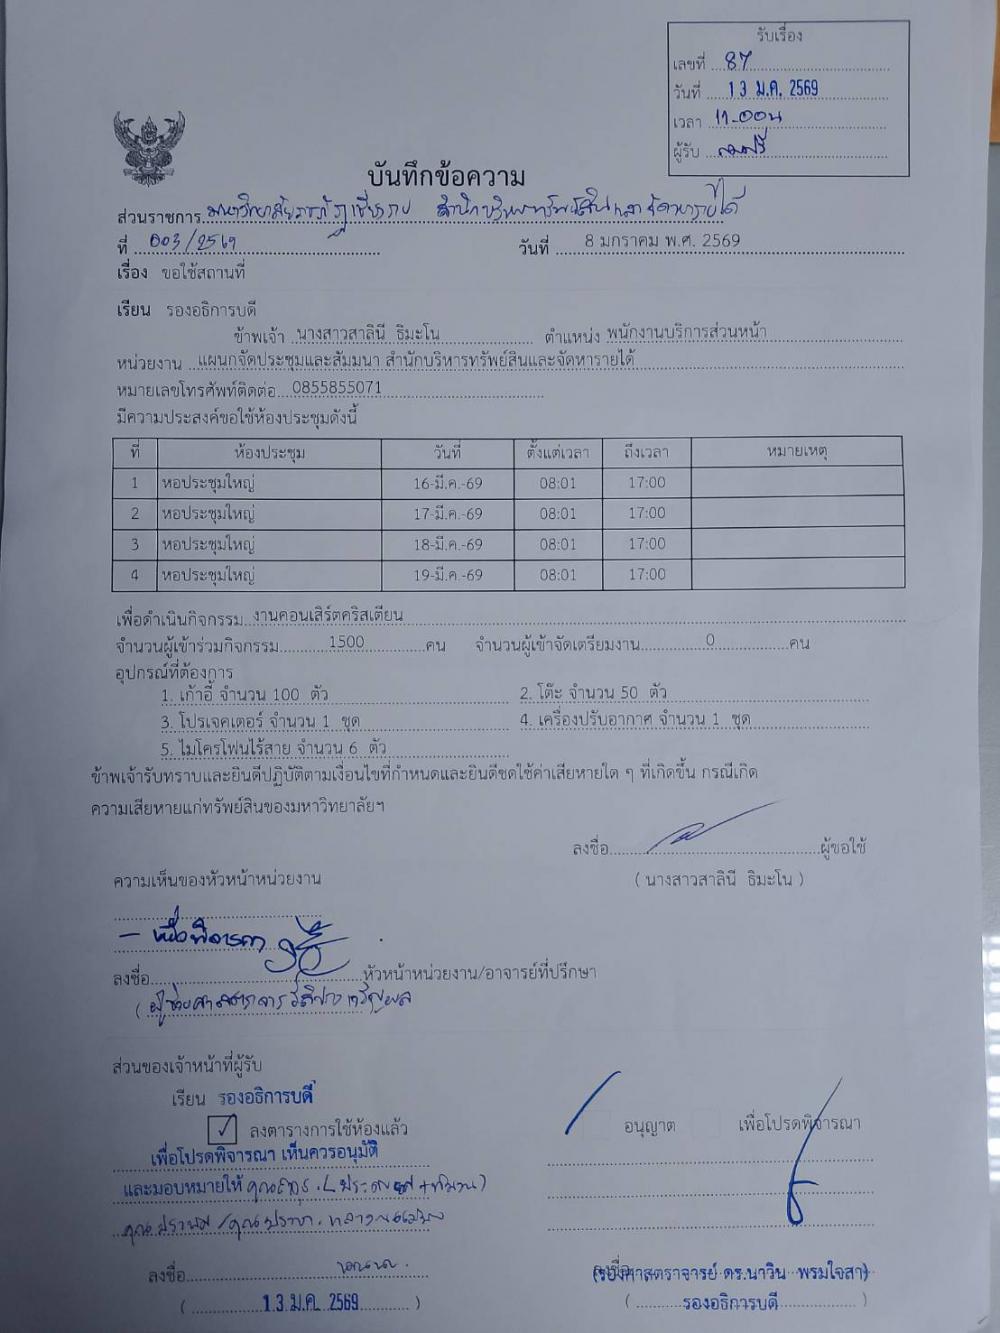 รับเรื่อง
เลขที่ 87
วันที่ 13 ม.ค. 2569
เวลา 11.00น
ผู้รับ
บันทึกข้อความ
ส่วนราชการ มหาวิทยาลัยราชภัฏเชียงราย สำนักบริหารทรัพย์สินและจัดหารายได้
ที่ 003/2569 วันที่ 8 มกราคม พ.ศ. 2569
เรื่อง ขอใช้สถานที่
เรียน รองอธิการบดี
ข้าพเจ้า นางสาวสาลินี ธิมะโน ตำแหน่ง พนักงานบริการส่วนหน้า
หน่วยงาน แผนกจัดประชุมและสัมมนา สำนักบริหารทรัพย์สินและจัดหารายได้
หมายเลขโทรศัพท์ติดต่อ 0855855071
มีความประสงค์ขอใช้ห้องประชุมดังนี้
ที่ ห้องประชุม วันที่ ตั้งแต่เวลา ถึงเวลา หมายเหตุ
1 หอประชุมใหญ่ 16-มี.ค.-69 08:01 17:00
2 หอประชุมใหญ่ 17-มี.ค.-69 08:01 17:00
3 หอประชุมใหญ่ 18-มี.ค.-69 08:01 17:00
4 หอประชุมใหญ่ 19-มี.ค.-69 08:01 17:00
เพื่อดำเนินกิจกรรม งานคอนเสิร์ตคริสเตียน
จำนวนผู้เข้าร่วมกิจกรรม 1500 คน จำนวนผู้เข้าจัดเตรียมงาน 0 คน
อุปกรณ์ที่ต้องการ
1. เก้าอี้ จำนวน 100 ตัว 2. โต๊ะ จำนวน 50 ตัว
3. โปรเจคเตอร์ จำนวน 1 ชุด 4. เครื่องปรับอากาศ จำนวน 1 ชุด
5. ไมโครโฟนไร้สาย จำนวน 6 ตัว
ข้าพเจ้ารับทราบและยินดีปฏิบัติตามเงื่อนไขที่กำหนดและยินดีชดใช้ค่าเสียหายใด ๆ ที่เกิดขึ้น กรณีเกิด
ความเสียหายแก่ทรัพย์สินของมหาวิทยาลัยฯ
ลงชื่อ ผู้ขอใช้
( นางสาวสาลินี ธิมะโน )
ความเห็นของหัวหน้าหน่วยงาน
- เพื่อพิจารณา
ลงชื่อ หัวหน้าหน่วยงาน/อาจารย์ที่ปรึกษา
( ผู้ช่วยศาสตราจารย์
ส่วนของเจ้าหน้าที่ผู้รับ
เรียน รองอธิการบดี
✓ ลงตารางการใช้ห้องแล้ว อนุญาต เพื่อโปรดพิจารณา
เพื่อโปรดพิจารณา เห็นควรอนุมัติ
และมอบหมายให้
ลงชื่อ
( 13 ม.ค. 2569 )
(รองศาสตราจารย์ ดร.นาวิน พรมใจสา)
( รองอธิการบดี )